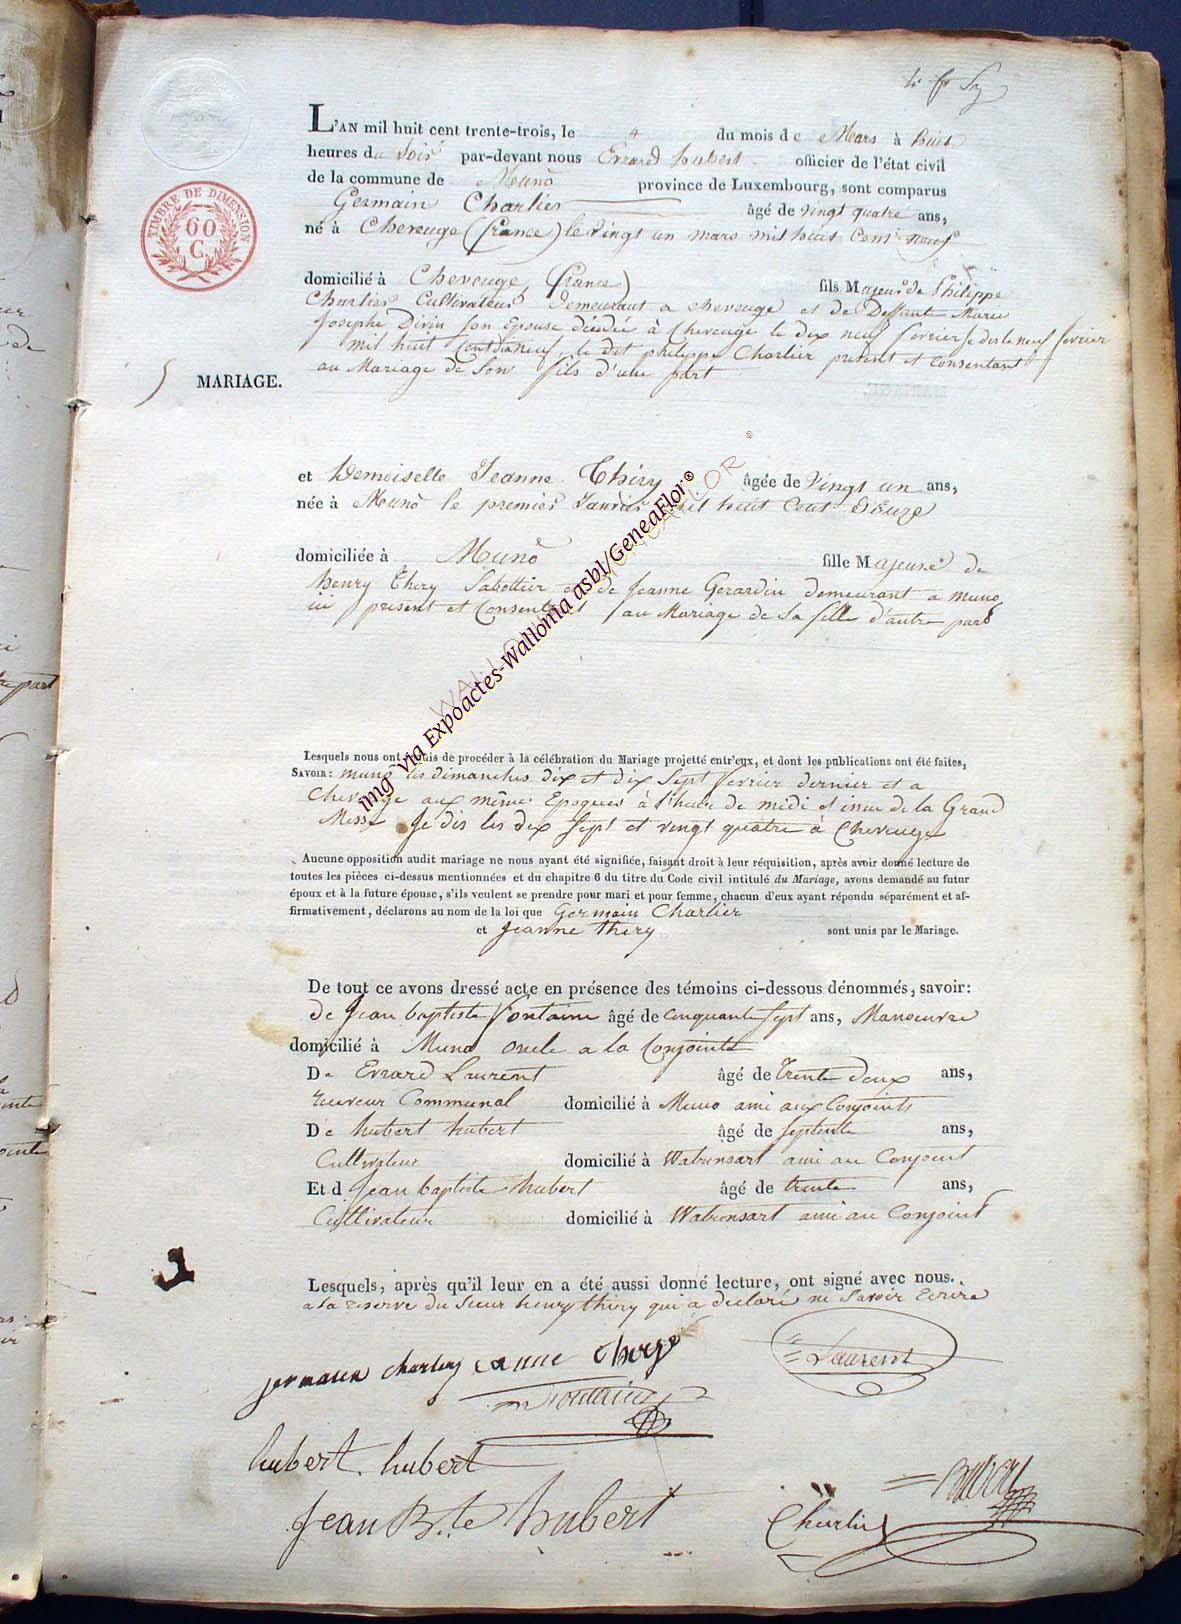 L'AN mil huit cent trente-trois, le 4 du mois de Mars à huit
heures du Soir par-devant nous Evrard hubert officier de l'état civil
de la commune de Muno province de Luxembourg, sont comparus
Germain Charlier âgé de vingt quatre ans,
né à Cheveuge (france) le vingt un mars mil huit cent neuf
TIMBRE DE DIMENSION
60
C.
domicilié à Cheveuge (france) fils Majeur de Philippe
Charlier Cultivateur demeurant a cheveuge et de Deffunte Marie
Josephe Divin son Epouse décédée à Cheveuge le dix neuf fevrier je dis le neuf fevrier
mil huit Cent dix neuf, le dit philippe Charlier present et consentant
au Mariage de Son fils d'une part
5 MARIAGE.
et Demoiselle Jeanne Thiry âgée de Vingt un ans,
née à Muno le premier Janvier mil huit Cent Douze
domiciliée à Muno fille Majeure de
henry Thiry Sabottier et de Jeanne Gerardin demeurant a muno
ici present et Consentant au Mariage de Sa fille d'autre part
Lesquels nous ont requis de procéder à la célébration du Mariage projetté entr'eux, et dont les publications ont été faites,
SAVOIR: muno les dimanches dix et dix Sept fevrier dernier et a
Cheveuge aux même Epoques à l'heure de midi et issue de la Grand
Messe Je dis les dix Sept et vingt quatre à Cheveuge
Aucune opposition audit mariage ne nous ayant été signifiée, faisant droit à leur réquisition, après avoir donné lecture de
toutes les pièces ci-dessus mentionnées et du chapitre 6 du titre du Code civil intitulé du Mariage, avons demandé au futur
époux et à la future épouse, s'ils veulent se prendre pour mari et pour femme, chacun d'eux ayant répondu séparément et af-
firmativement, déclarons au nom de la loi que Germain Charlier
et Jeanne thiry sont unis par le Mariage.
De tout ce avons dressé acte en présence des témoins ci-dessous dénommés, savoir:
de Jean baptiste Fontaine âgé de cinquante sept ans, Manoeuvre
domicilié à Muno oncle a la Conjointe
De Evrard Laurent âgé de trente deux ans,
receveur Communal domicilié à Muno ami aux Conjoints
De hubert hubert âgé de septente ans,
Cultivateur domicilié à Watrinsart ami au Conjoint
Et d Jean baptiste hubert âgé de trente ans,
Cultivateur domicilié à Watrinsart ami au Conjoint
Lesquels, après qu'il leur en a été aussi donné lecture, ont signé avec nous.
a la reserve du Sieur henry thiry qui a declaré ne Savoir Ecrire
Laurent
hubert hubert
Jean B.te hubert
Charlier
img via Expoactes-Wallonia asbl/GeneaFlor®